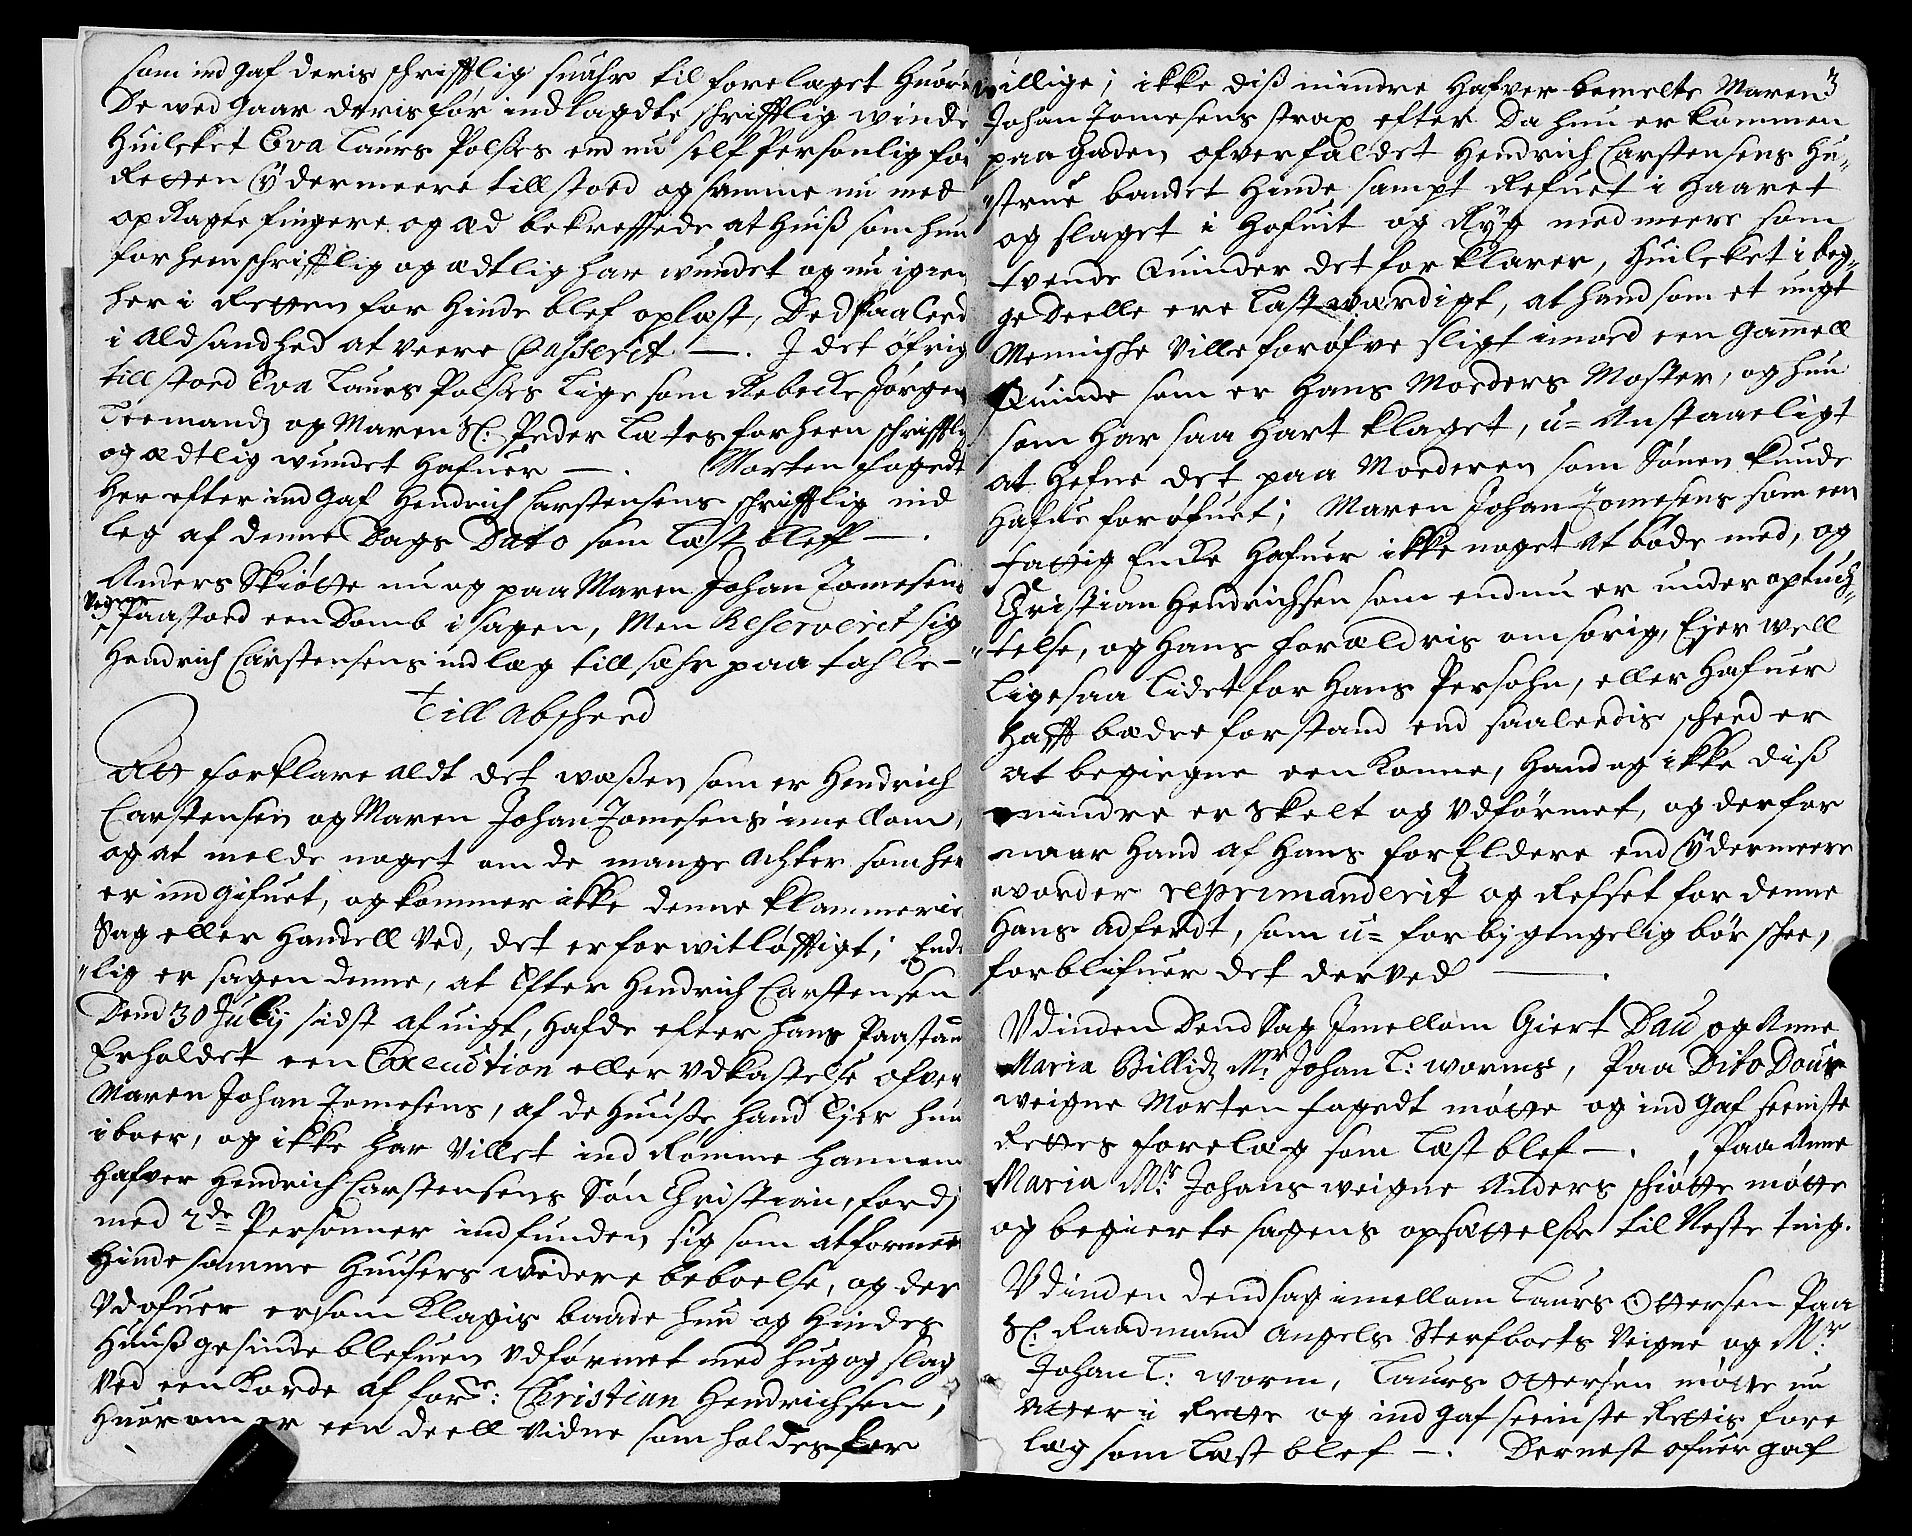 som ind gaf deris schrifftlig suahr til forelaget Huor
De wed gaar deris før indlagdte schrifftlig winde
Huilcket Eva Laurs Polses end nu self Personlig for
Retten ÿdermeere till stoed og samme nu med
opragte fingere og æd bekreffftede at Huiß som hun
forheen schrifftlig og ædtlig har wundet og nu igien
her i Retten for Hinde blef oplæst, Ded saaleed
i ald sandhed at veere Passerit —. I det øfrig
till stoed Eva Laurs Polses lige som Rebecke Jørgen
Teemandz og Maren Sl: Peder Lætes forheen schrifftlig
og ædtlig wundet Hafuer —. Morten fogedt
Her efter ind gaf Hendrich Carstensens schrifftlig ind
leg af denne Dags Dato som læst bleff —.
Anders Skiøtte nu og paa Maren Johan Jomesens
Veigne Paastoed een Domb i sagen, Men Reserverit sig
Hendrich Carstensens indlæg till sahr paa tahle —
Till Abscheed
Att forklare aldt det wæßen som er Hendrich
Carstensen og Maren Johan Jomesens imellom,
og at melde noget om de mange Achter som her
er ind gifuet, og kommer ikke denne klammerie
Sag eller Handell ved, det er for witløfftigt; Ende
"lig er sagen denne, at Efter Hendrich Carstensen
Dend 30 Julij sidst afuigt, Hafde efter hans Paastand
Erholdet een Execution eller Udkastelse ofver
Maren Johan Jomesens, af de Huuße hand Ejer hun
iboer, og ikke har Villet ind Rømme hannem
Hafver Hendrich Carstensens Søn Christian, fordj
med 2de Personner indfunden sig som at formeene
Hinde samme Huusers widere beboelse, og der
Udofuer er som klagis baade hun og Hindes
Huußgesinde blefuen Udførmet med hug og slag
Ved een Korde af forne: Christian Hendrichsen;
Huorom er een deell Vidne som holdes for
3
willige; ikke diß mindre Hafver bemelte Maren
Johan Jomesens strax efter Da hun er kommen
paa gaden ofverfaldet Hendrich Carstensens Hu"
"strue bandet Hinde sampt Refuet i Haaret
og slaget i Hofuit og Ryg med meere som
tvende Quinder det forklarer, Huilcket i beg"
ge Deelle ere Lastwærdigt, at hand som et ungt
Mennische ville forøfve sligt imoed een gamell
Quinde som er Hans Moeders Moster, og hun
som Har saa Hart klaget, u= Anstaaeligt
at Hefne det paa Moederen som Sønen kunde
Hafue forøfuet; Maren Johan Jomesens som een
fattig Encke Hafuer ikke noget at bøde med, og
Christian Hendrichsen som endnu er under optuch"
"telse, og Hans forældris omsorig, Ejer well
ligesaa lidet for Hans Persohn, eller Hafuer
Hafft bædre forstand end saaleedis scheed er
at begiegne een konne, Hand og ikke diß
mindre er skelt og Udførmet, og derfor
naar Hand af Hans forEldere end ÿdermeere
worder reprimanderit og Refset for denne
Hans Adferdt, som u= forbigengelig bør schee,
forblifuer det derved —.
Udinden Dend Sag Imellom Giert Dau og Anne
Maria Billidz Mr: Johan L: worms, Paa Dito Dous
weigne Morten fogedt møtte og ind gaf seeniste
Rettes forelæg som læst blef —. Paa Anne
Maria Mr: Johans weigne Anders schiøtte møtte
og begierte sagens opsættelse til Neste ting.
Udinden Dend sag imellom Laurs Ottersen Paa
Sl: Raadmand Angels Sterfboets Veigne og Mr:
Johan L: Worm, Laurs Ottersen møtte nu
Atter i Rette og ind gaf seeniste Rettis fore
læg som læst blef —. Dernest ofuer gaf